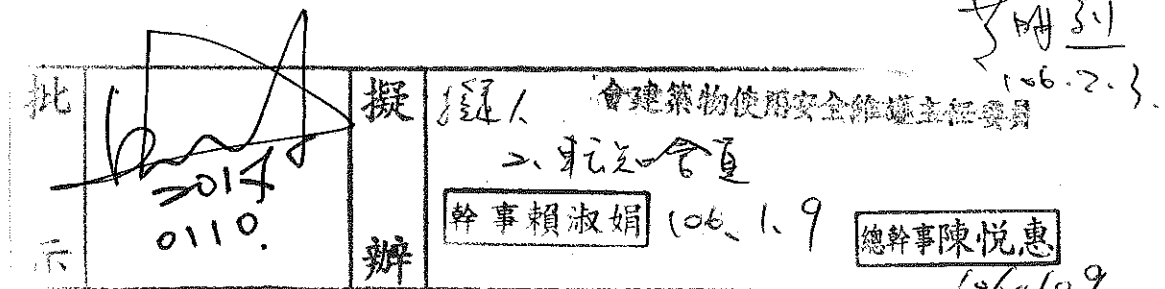 106.2.3.
批示
2017
0110.
擬辦
會建築物使用安全維護主任委員
2、轉知會員
幹事賴淑娟 106.1.9
總幹事陳悅惠
106.1.9